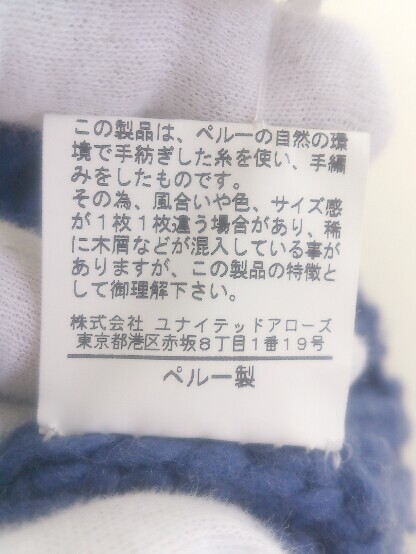 この製品は、ペルーの自然の環
境で手紡ぎした糸を使い、手編
みをしたものです。
その為、風合いや色、サイズ感
が1枚1枚違う場合があり、稀
に木屑などが混入している事が
ありますが、この製品の特徴と
して御理解下さい。
株式会社 ユナイテッドアローズ
東京都港区赤坂8丁目1番19号
ペルー製